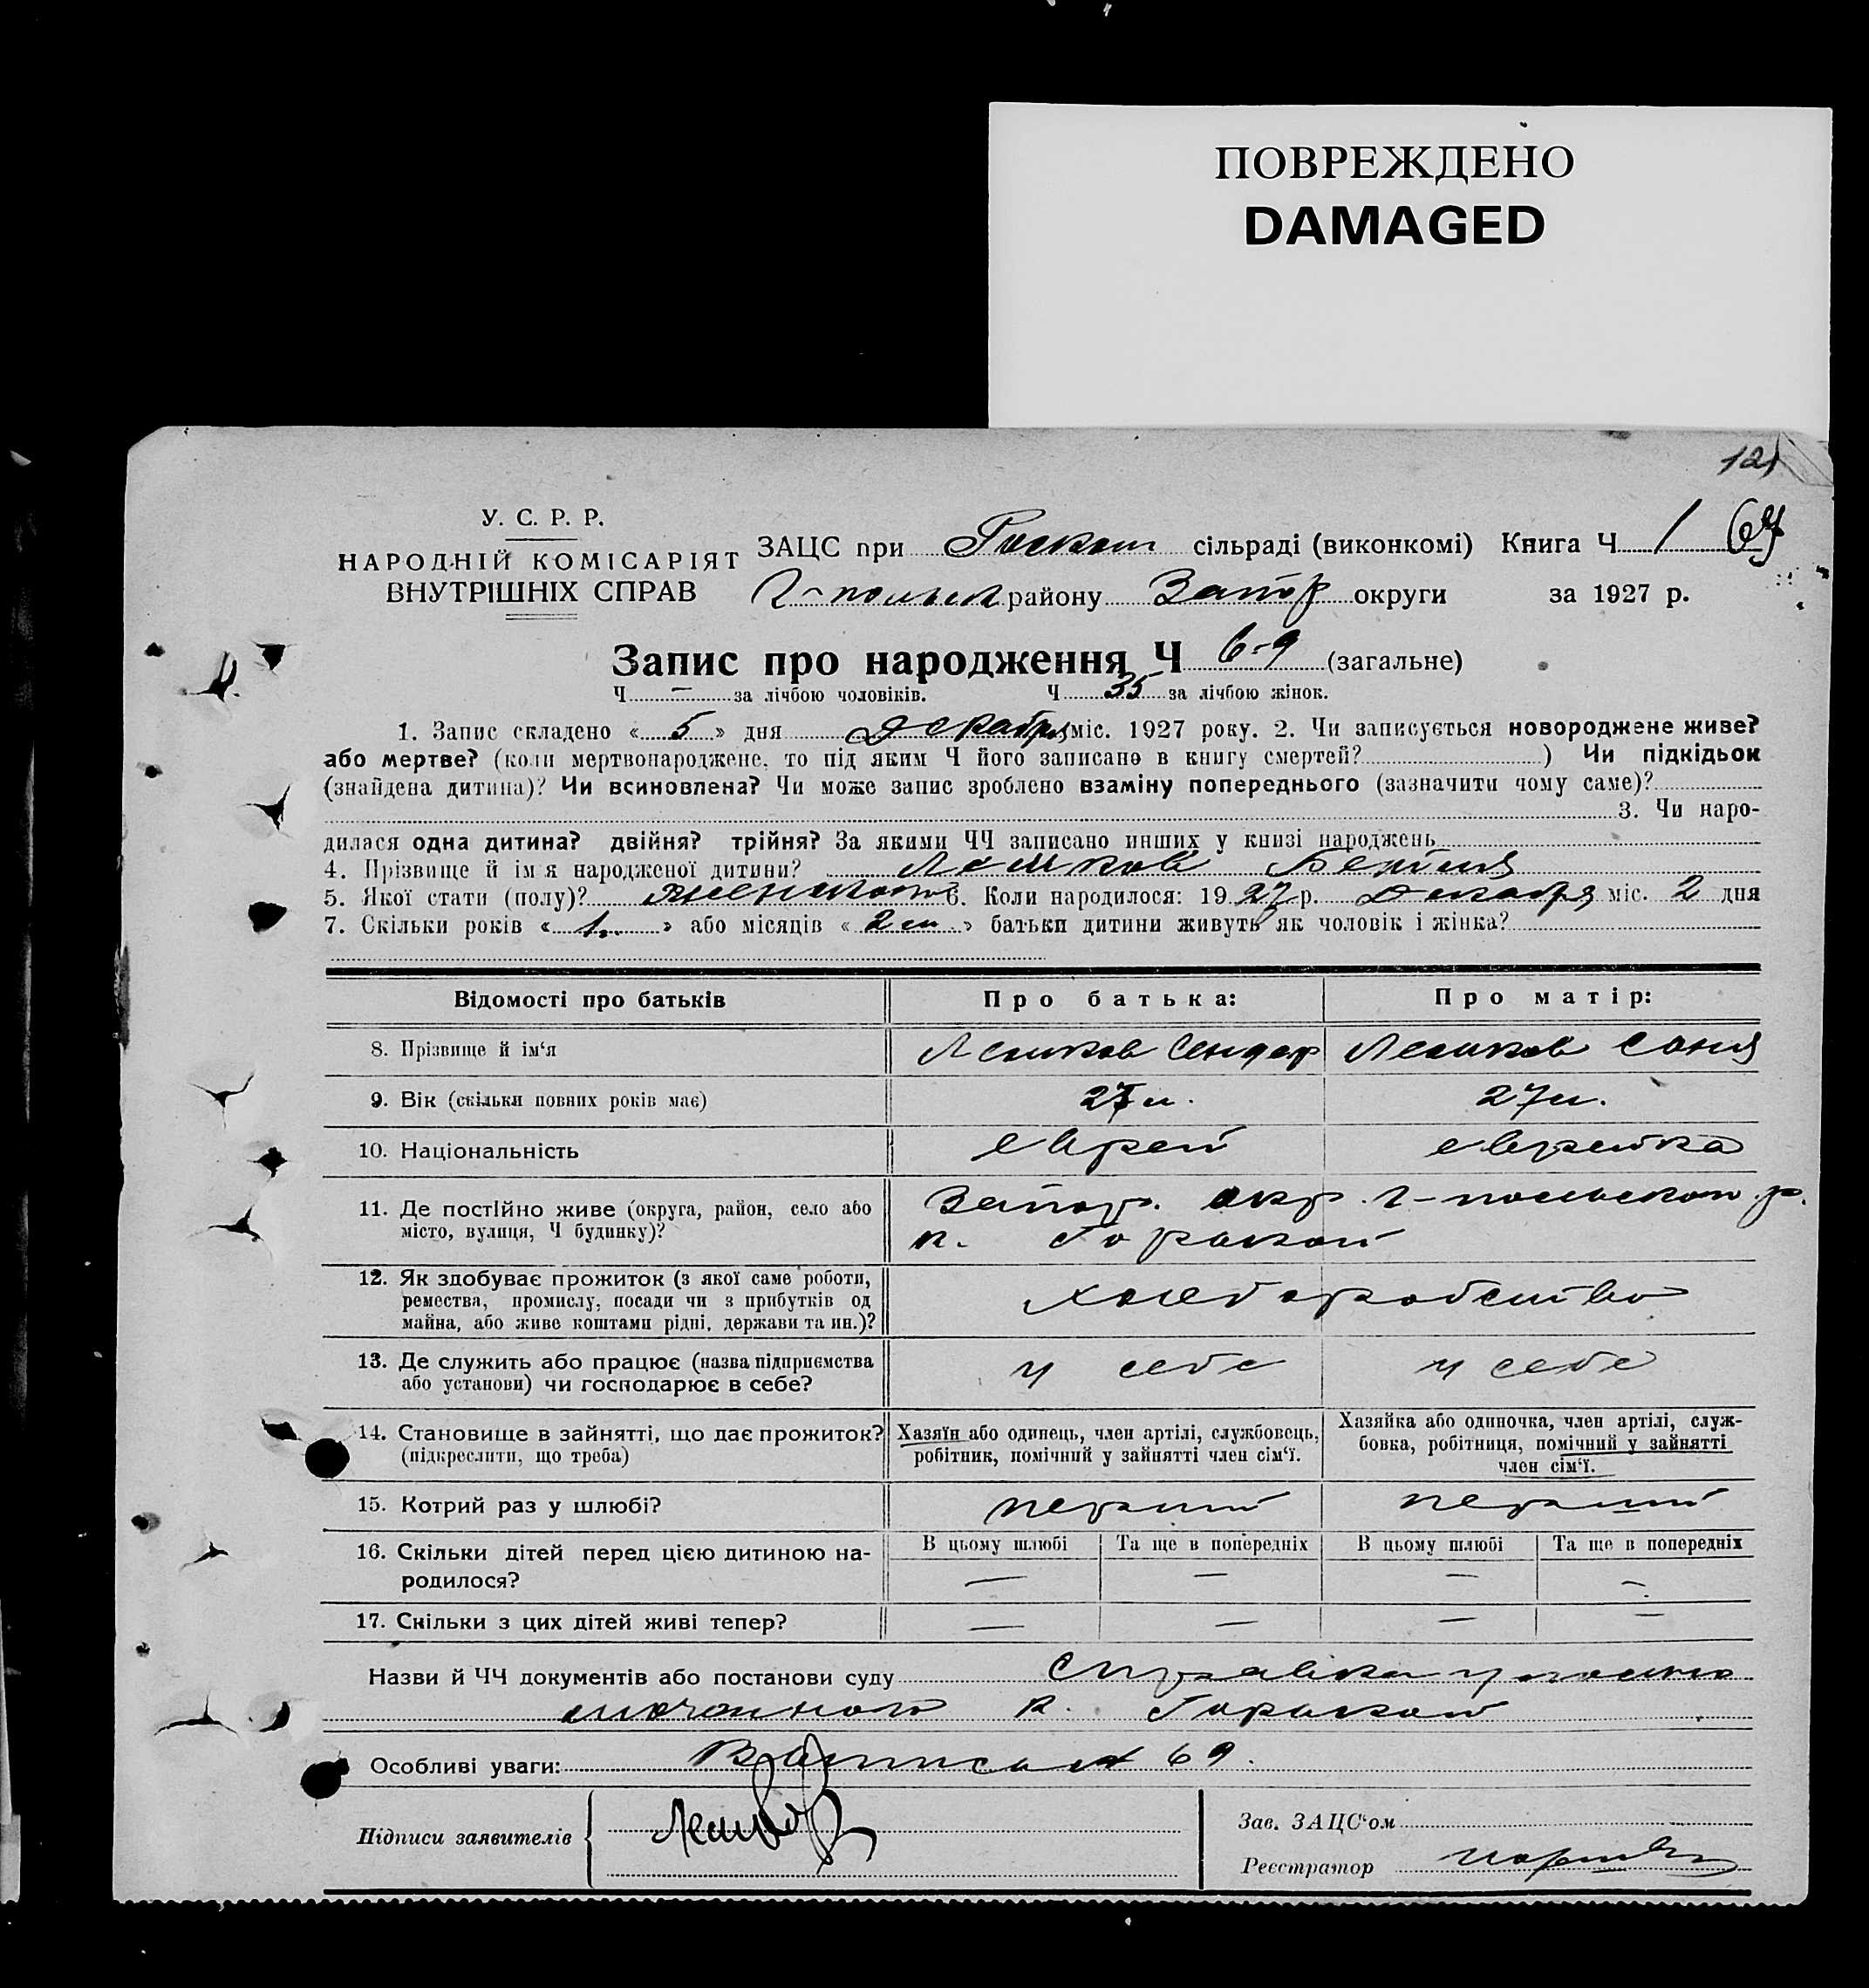 ПОВРЕЖДЕНО
DAMAGED
121
У. С. Р. Р.
НАРОДНІЙ КОМІСАРІЯТ
ВНУТРІШНІХ СПРАВ
ЗАЦС при сільраді (виконкомі) Книга Ч 1 69
району Запор округи за 1927 р.
Запис про народження Ч 69 (загальне)
Ч — за лічбою чоловіків. Ч 35 за лічбою жінок.
1. Запис складено « 5 » дня Декабря міс. 1927 року. 2. Чи записується новороджене живе?
або мертве? (коли мертвонароджене, то під яким Ч його записано в книгу смертей? ) Чи підкідьок
(знайдена дитина)? Чи всиновлена? Чи може запис зроблено взаміну попереднього (зазначити чому саме)?
3. Чи наро-
дилася одна дитина? двійня? трійня? За якими ЧЧ записано инших у книзі народжень
4. Прізвище й ім'я народженої дитини? Лешков
5. Якої стати (полу)? 6. Коли народилося: 1927 р. Декабря міс. 2 дня
7. Скільки років « 1 » або місяців « 2 м » батьки дитини живуть як чоловік і жінка?
Відомості про батьків Про батька: Про матір:
8. Прізвище й ім'я Лешков Сендер Лешков Соня
9. Вік (скільки повних років має) 27 л. 27 л.
10. Національність еврей еврейка
11. Де постійно живе (округа, район, село або Запор. окр. Г-польского р.
місто, вулиця, Ч будинку)? к. Горькой
12. Як здобуває прожиток (з якої саме роботи, хлеборобство
ремества, промислу, посади чи з прибутків од
майна, або живе коштами рідні, держави та ин.)?
13. Де служить або працює (назва підприємства у себе у себе
або установи) чи господарює в себе?
14. Становище в зайнятті, що дає прожиток? Хазяїн або одинець, член артілі, службовець, Хазяйка або одиночка, член артілі, служ-
(підкреслити, що треба) робітник, помічний у зайнятті член сім'ї. бовка, робітниця, помічний у зайнятті
член сім'ї.
15. Котрий раз у шлюбі? первый первый
16. Скільки дітей перед цією дитиною на- В цьому шлюбі Та ще в попередніх В цьому шлюбі Та ще в попередніх
родилося? — — — —
17. Скільки з цих дітей живі тепер? — — — —
Назви й ЧЧ документів або постанови суду Справка уполно
моченного к. Горькой
Особливі уваги: 69.
Підписи заявителів Лешков
Зав. ЗАЦС'ом
Реєстратор